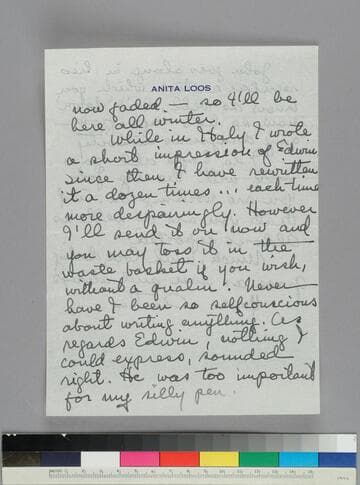 ANITA LOOS
now faded. — so I'll be
here all winter.
While in Italy I wrote
a short impression of Edwin
Since then I have rewritten
it a dozen times... each time
more despairingly. However
I'll send it on now and
you may toss it in the
waste basket if you wish,
without a qualm. Never
have I been so selfconscious
about writing anything. As
regards Edwin, nothing I
could express, sounded
right. He was too important
for my silly pen.